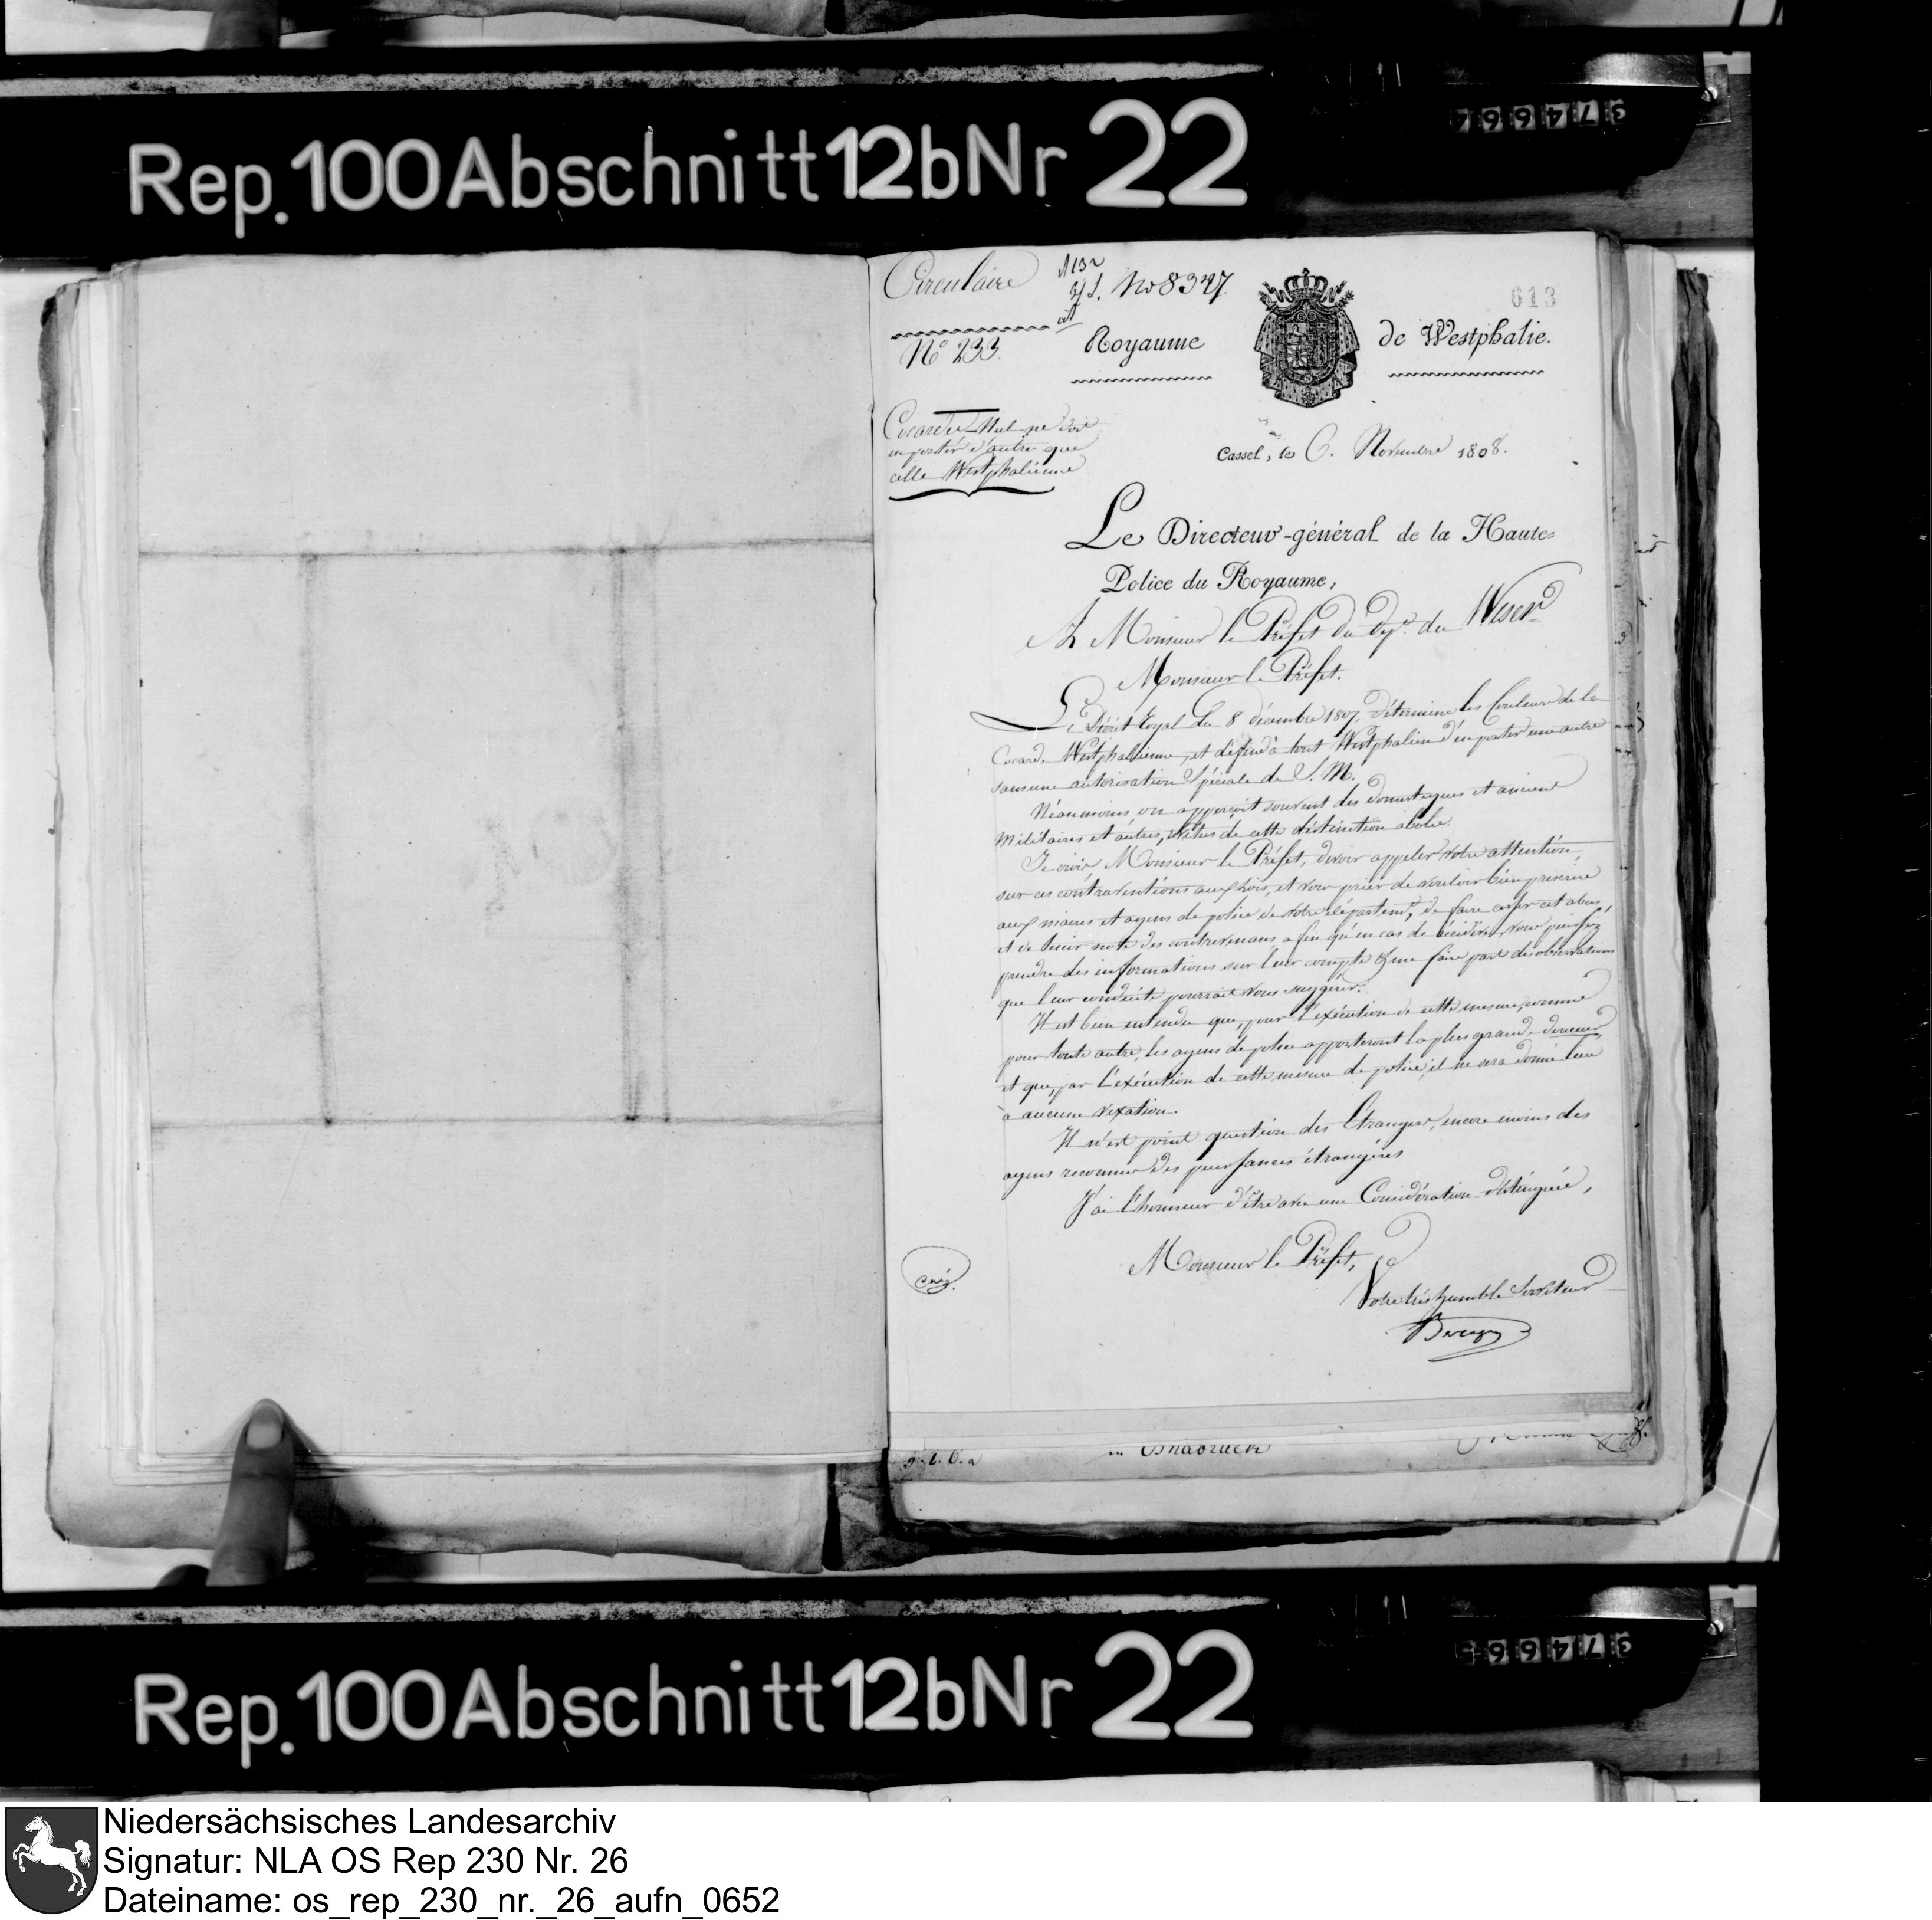 Rep. 100 Abschnitt 12b Nr 22
374664
Circulaire
No 8347.
613
N° 233.
Royaume de Westphalie.
Cocarde. Nul ne doit
en porter d'autre que
celle Westphalienne
Cassel, le 6. Novembre 1808.
Le Directeur-général de la Haute-
Police du Royaume,
A Monsieur le Préfet du Dep.t du Weser
Monsieur le Préfet.
Le Décret Royal du 8 décembre 1807, détermine les Couleurs de la
Cocarde Westphalienne, et défend à tout Westphalien d'en porter une autre
sans une autorisation Spéciale de S. M.
Néanmoins, on apperçoit souvent des domestiques et anciens
Militaires et autres, vêtus de cette distinction abolie.
Je crois, Monsieur le Préfet, devoir appeler votre attention,
sur ces contraventions aux Lois, et vous prier de vouloir bien prescrire
aux maires et agens de police de votre départemt, de faire cesser cet abus,
et de tenir note des contrevenans, afin qu'en cas de récidive, vous puissiez
prendre des informations sur leur compte & me faire part des observations
que leur conduite pourrait vous suggérer.
Il est bien entendu que, pour l'exécution de cette mesure, comme
pour toute autre, les agens de police apporteront la plus grande douceur,
et que, par l'exécution de cette mesure de police, il ne sera donné lieu
à aucune vexation.
Il n'est point question des Etrangers, encore moins des
agens reconnus des puissances étrangères
J'ai l'honneur d'être avec une Considération distinguée,
Monsieur le Préfet,
Votre très humble Serviteur
Bercagny
Osnabruck
Rep. 100 Abschnitt 12b Nr 22
374665
Niedersächsisches Landesarchiv
Signatur: NLA OS Rep 230 Nr. 26
Dateiname: os_rep_230_nr._26_aufn_0652